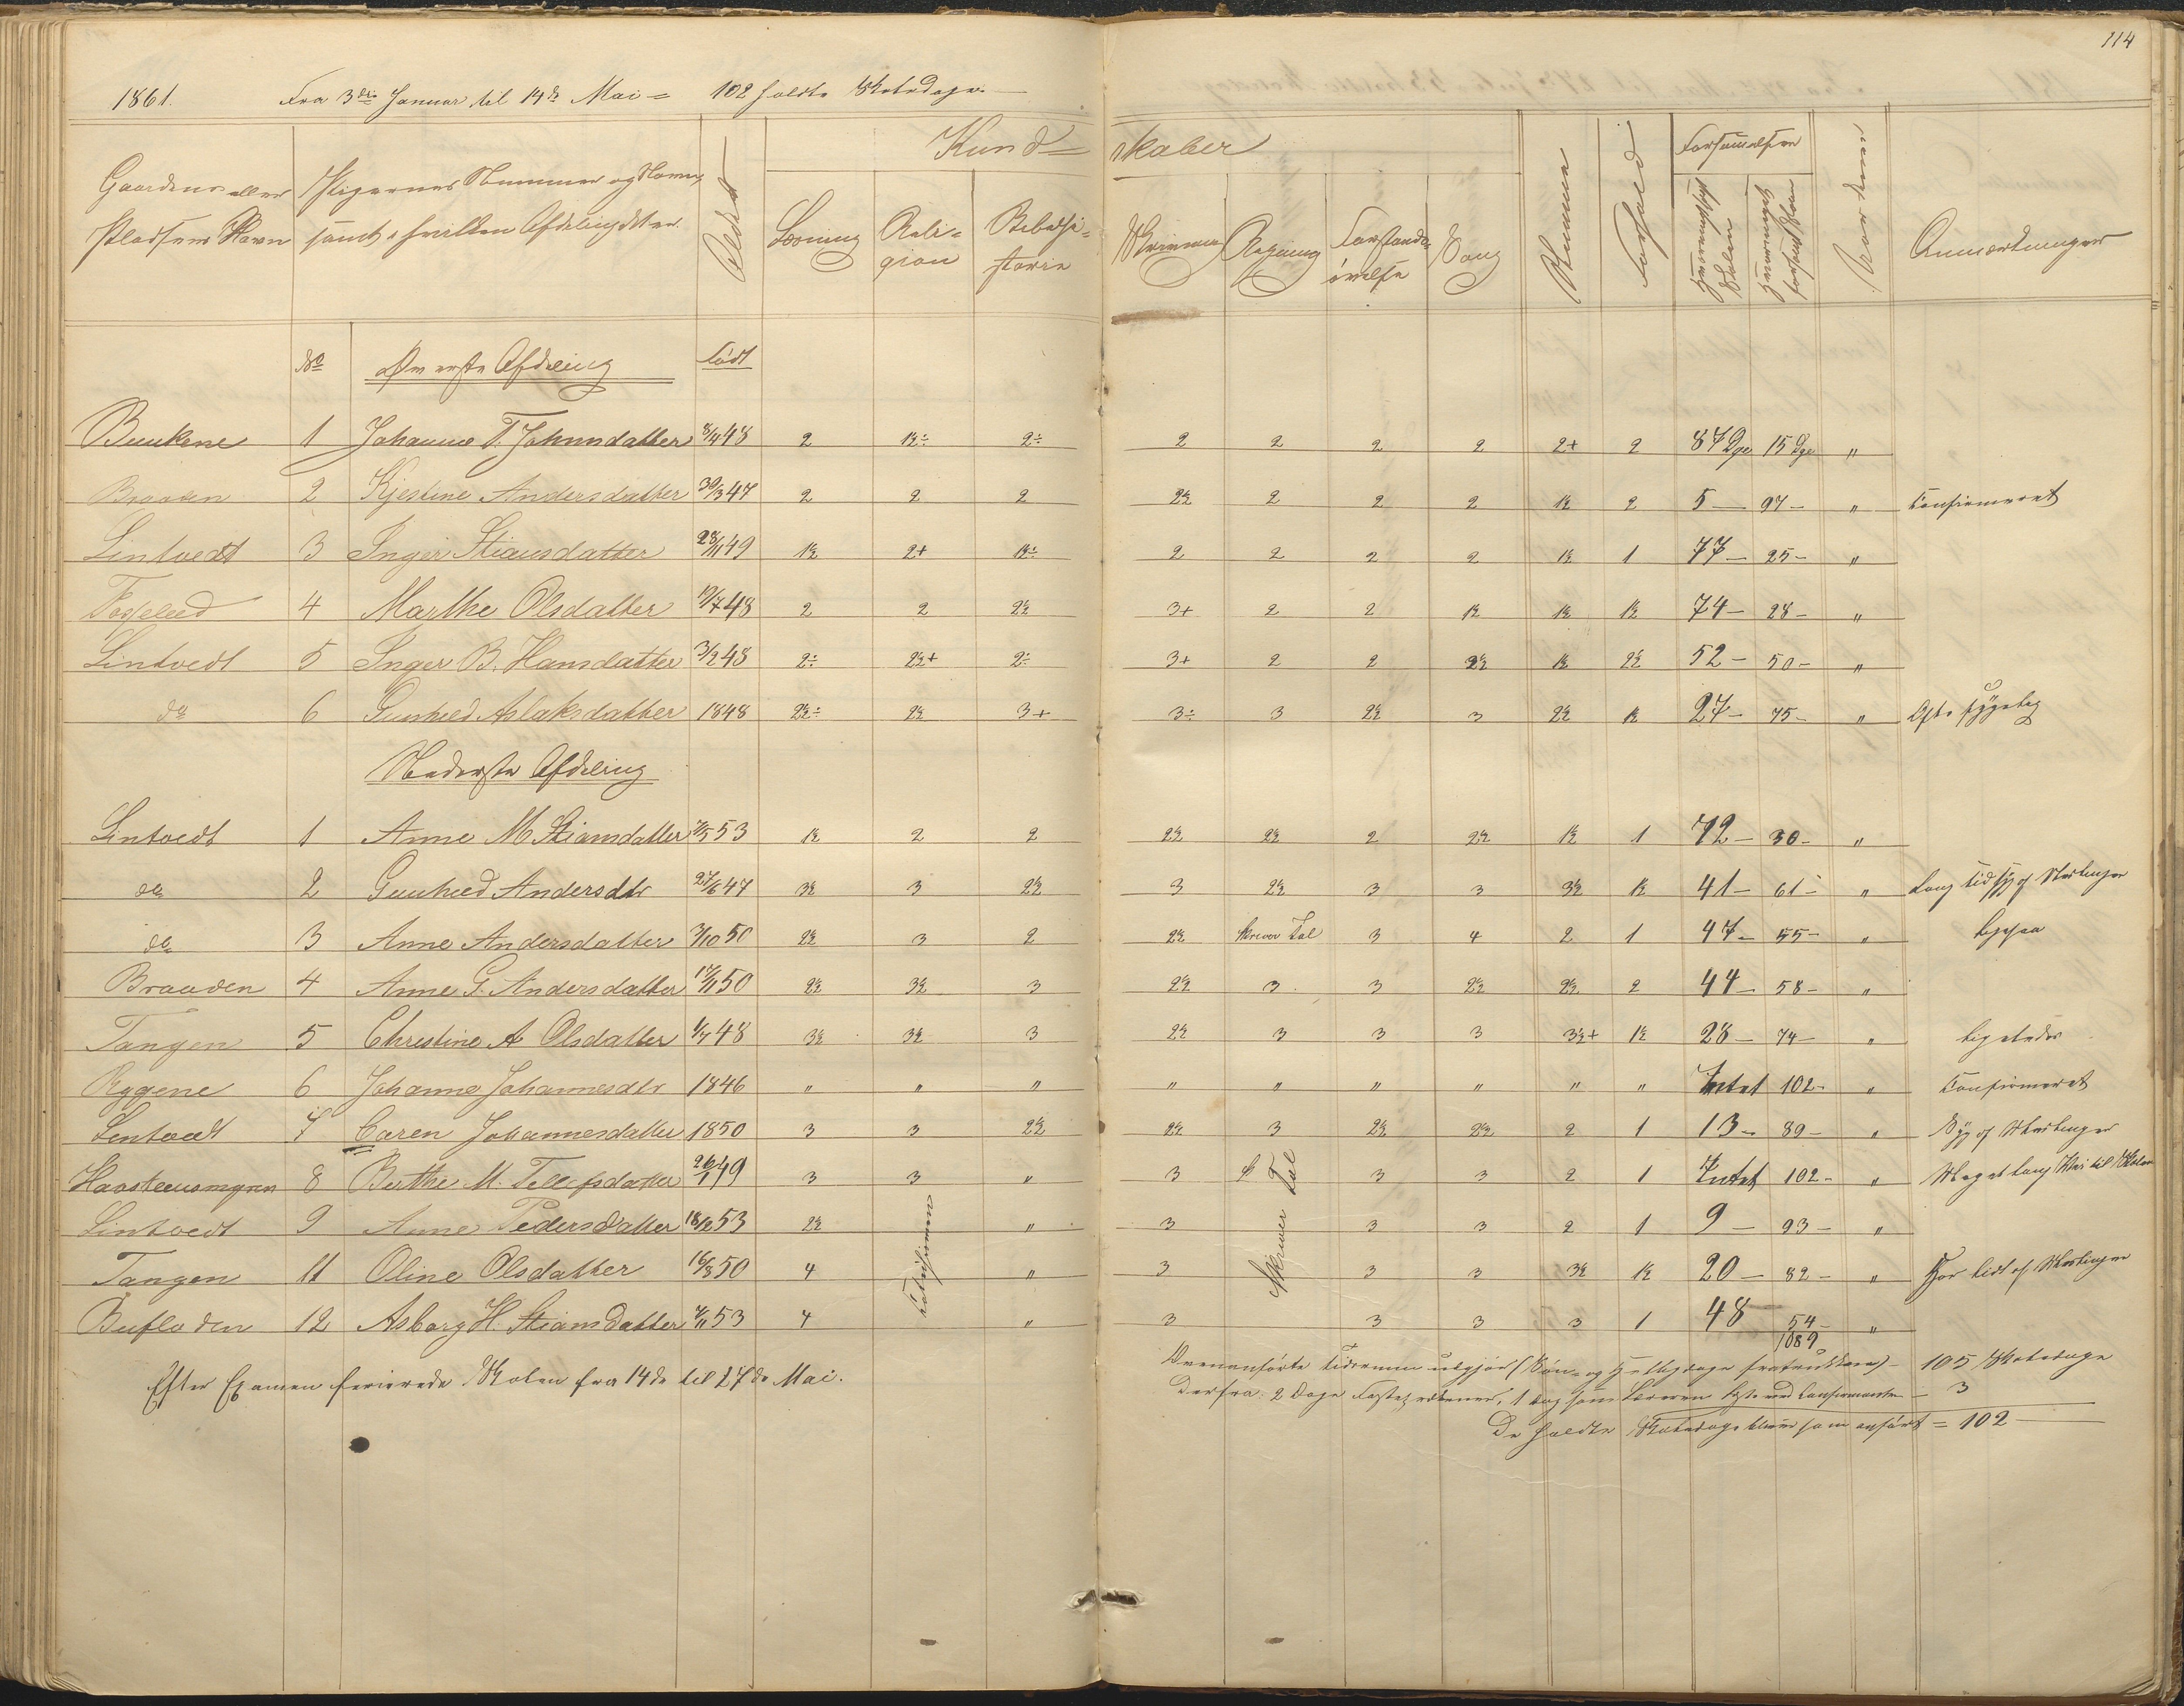 114
1861. Fra 3die Januar til 14de Mai = 102 holdte Skoledage.
Kundskaber
Gaardens eller Pladsens Navn
Pigernes Nummer og Navn, samt i hvilken Afdeling de ere
Alder
Læsning
Religion
Bibelhistorie
Skrivning
Regning
Forstandsøvelse
Sang
Nemme
Forhold
Forsømmelser
Anmærkninger
No Øverste Afdeling Født
Bunkene 1 Johanne T. Johnsdatter 8/4 48 2 1½÷ 2÷ 2 2 2 2 2+ 2 87 Dge 15 Dge "
Braaden 2 Kjestine Andersdatter 30/3 47 2 2 2 2½ 2 2 2 1½ 2 5 — 97 — " Confirmeret
Lintvedt 3 Inger Stiansdatter 28/11 49 1½ 2+ 1½÷ 2 2 2 2 1½ 1 77 — 25 — "
4 Marthe Olsdatter 19/7 48 2 2 2½ 3+ 2 2 1½ 1½ 1½ 74 — 28 — "
Lintvedt 5 Inger B. Hansdatter 3/2 48 2÷ 2½+ 2÷ 3+ 2 2 2½ 1½ 2½ 52 — 50 — "
do 6 Gunhild Aslaksdatter 1848 2½÷ 2½ 3+ 3÷ 3 2½ 3 2½ 1½ 27 — 75 — " Ofte sygelig
Nederste Afdeling
Lintvedt 1 Anne M. Stiansdatter 53 1½ 2 2 2½ 2½ 2 2½ 1½ 1 72 — 30 — "
do 2 Gunhild Andersdtr 27/6 47 3½ 3 2½ 3 2½ 3 3 3½ 1½ 41 — 61 — " Lang tid syg af Meslinger
do 3 Anne Andersdatter 3/10 50 2½ 3 2 2½ skriver Tal 3 4 2 1 47 — 55 — " ligesaa
Braaden 4 Anne G. Andersdatter 17/11 50 2½ 3½ 3 2½ 3 3 2½ 2½ 2 44 — 58 — "
Tangen 5 Christine A Olsdatter 1/7 48 3½ 3½ 3 2½ 3 3 3 3½+ 1½ 28 — 74 — " ligeledes
Ryggene 6 Johanne Johannesdtr 1846 " " " " " " " " " Intet 102 — " Confirmeret
Lintvedt 7 Caren Johannesdatter 1850 3 3 2½ 2½ 3 2½ 2½ 2 1 13 — 89 — " Syg af Meslinger
8 Berthe M. Tellefsdatter 26/1 49 3 3 " 3 3 3 2 1 Intet 102 — " Meget lang Vei til Skolen
Lintvedt 9 Anne Pedersdatter 18/12 53 2½ " 3 3 3 2 1 9 — 93 — "
Tangen 11 Oline Olsdatter 16/3 50 4 " 3 3 3 3½ 1½ 20 — 82 — " Har lidt af Meslinger
Bufloden 12 Asborg H. Stiansdatter 53 4 " 3 3 3 3 1 48 54 — "
Skriver Tal
1089
Efter Examen ferierede Skolen fra 14de til 27de Mai.
Ovenanførte Tidsrum udgjør (Søn- og Helligdage fratrukken) — 105 Skoledage
Derfra: 2 Dage 1 Dag som Læreren — 3
De holdte Skoledage bliver som anført = 102 —